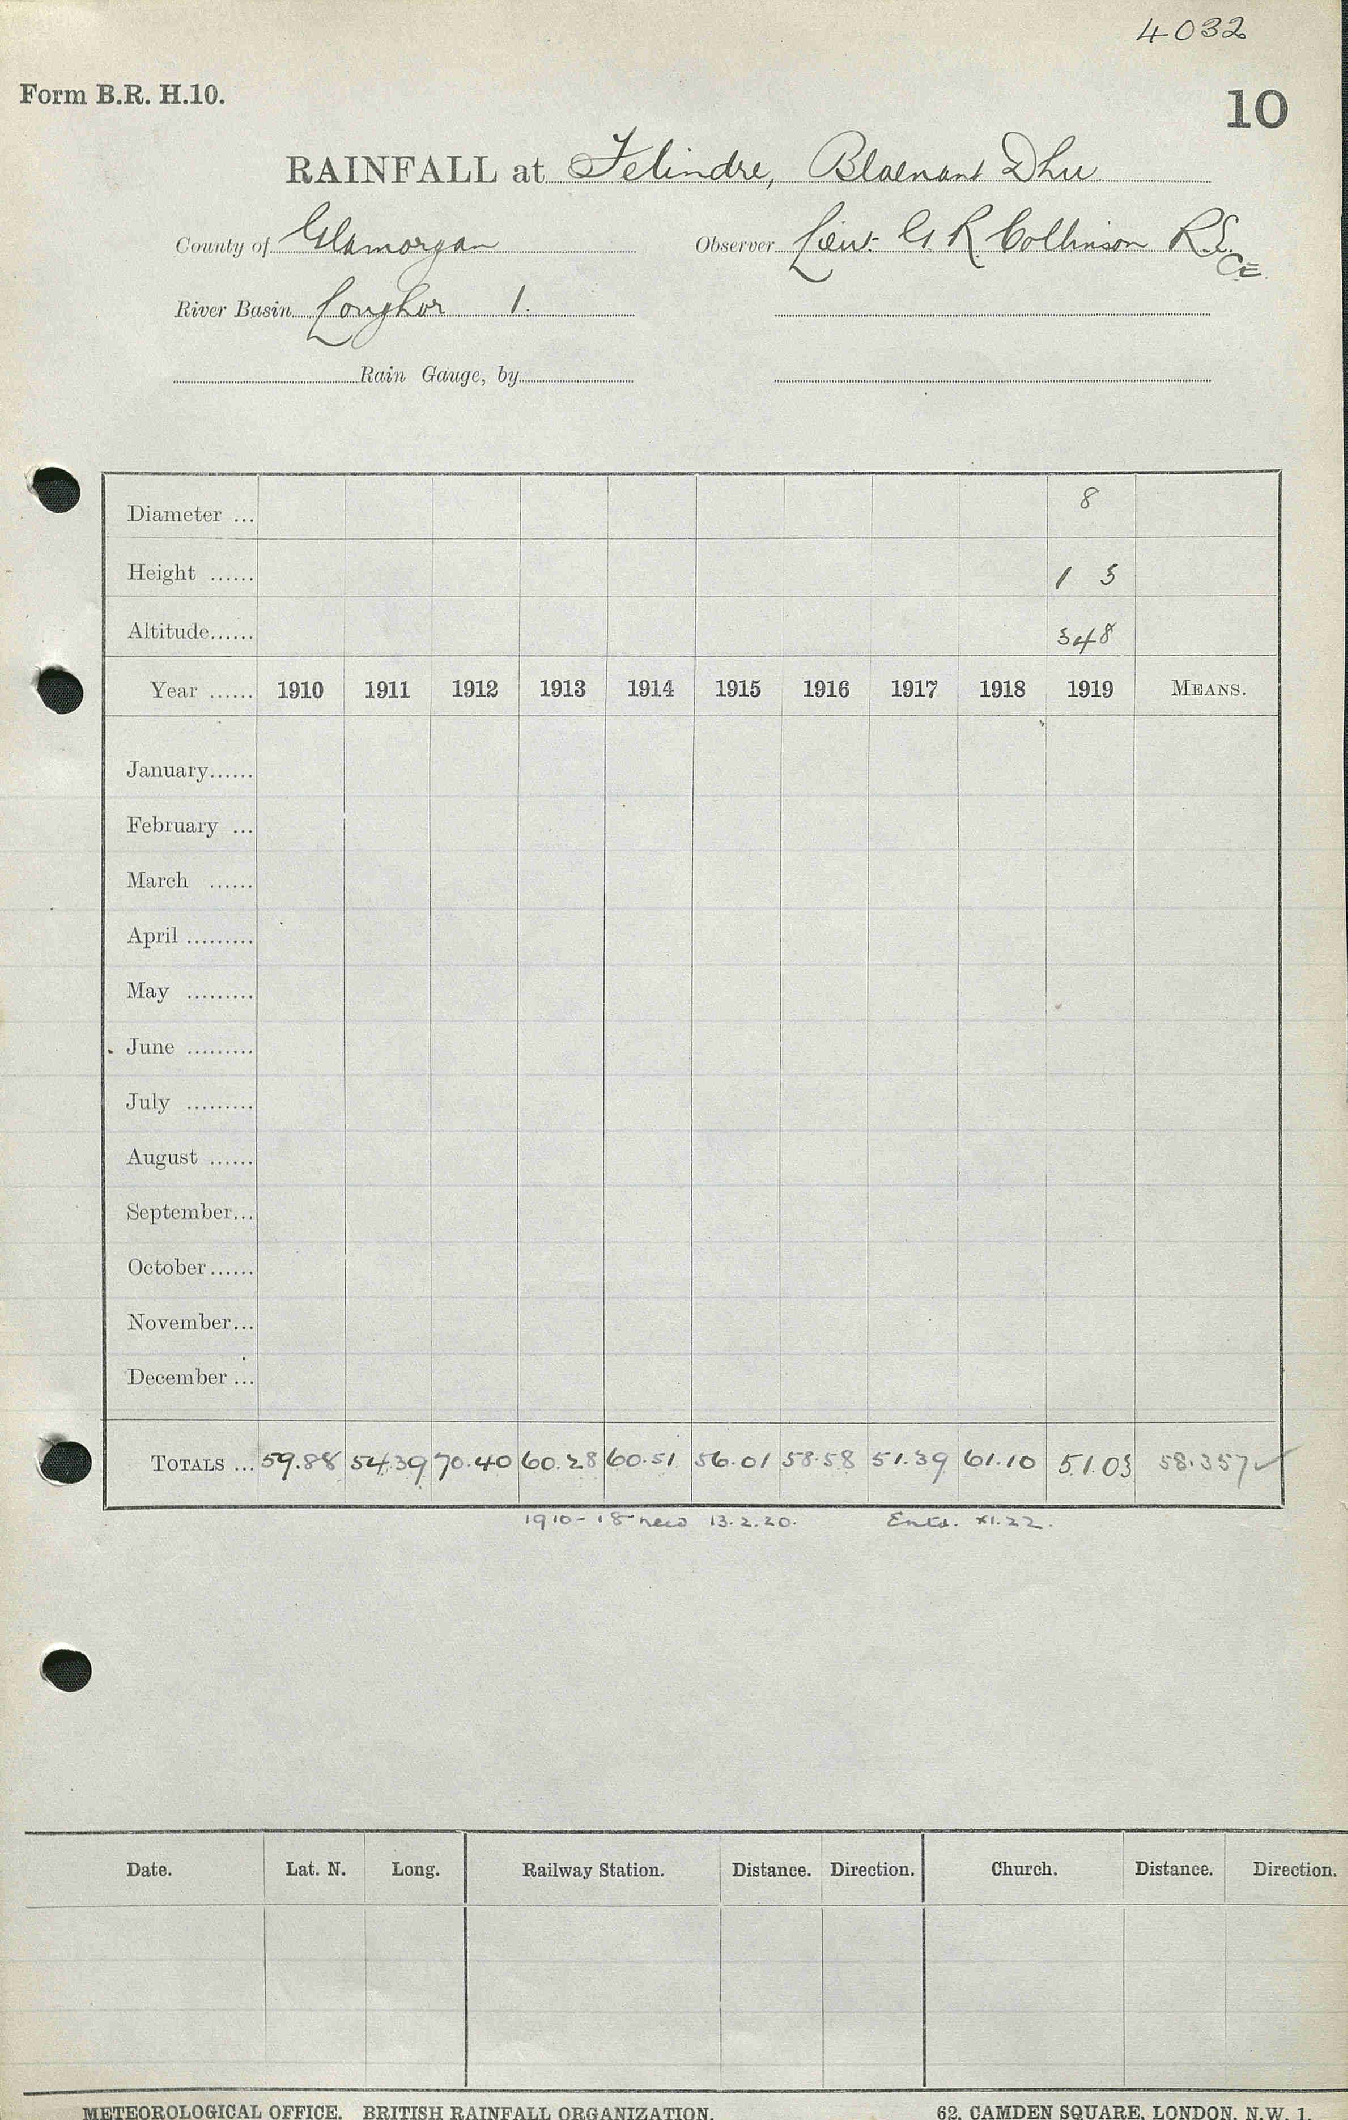 4032
Form B.R. H.10.
10
RAINFALL at Felindre, Blaenant Dhu
County of Glamorgan Observer Lieut. G R Collinson R.E.
C.E.
River Basin Loughor 1.
Rain Gauge, by
Diameter ... 8
Height ...... 1 3
Altitude...... 348
Year ...... 1910 1911 1912 1913 1914 1915 1916 1917 1918 1919 MEANS.
January......
February ...
March ......
April .........
May .........
June .........
July .........
August ......
September...
October......
November...
December ...
TOTALS ... 59.88 54.39 70.40 60.28 60.51 56.01 58.58 51.39 61.10 51.03 58.357 ✓
1910-18 new 13.2.20. Entd. XI.22.
Date. Lat. N. Long. Railway Station. Distance. Direction. Church. Distance. Direction.
METEOROLOGICAL OFFICE. BRITISH RAINFALL ORGANIZATION. 62, CAMDEN SQUARE, LONDON, N.W. 1.